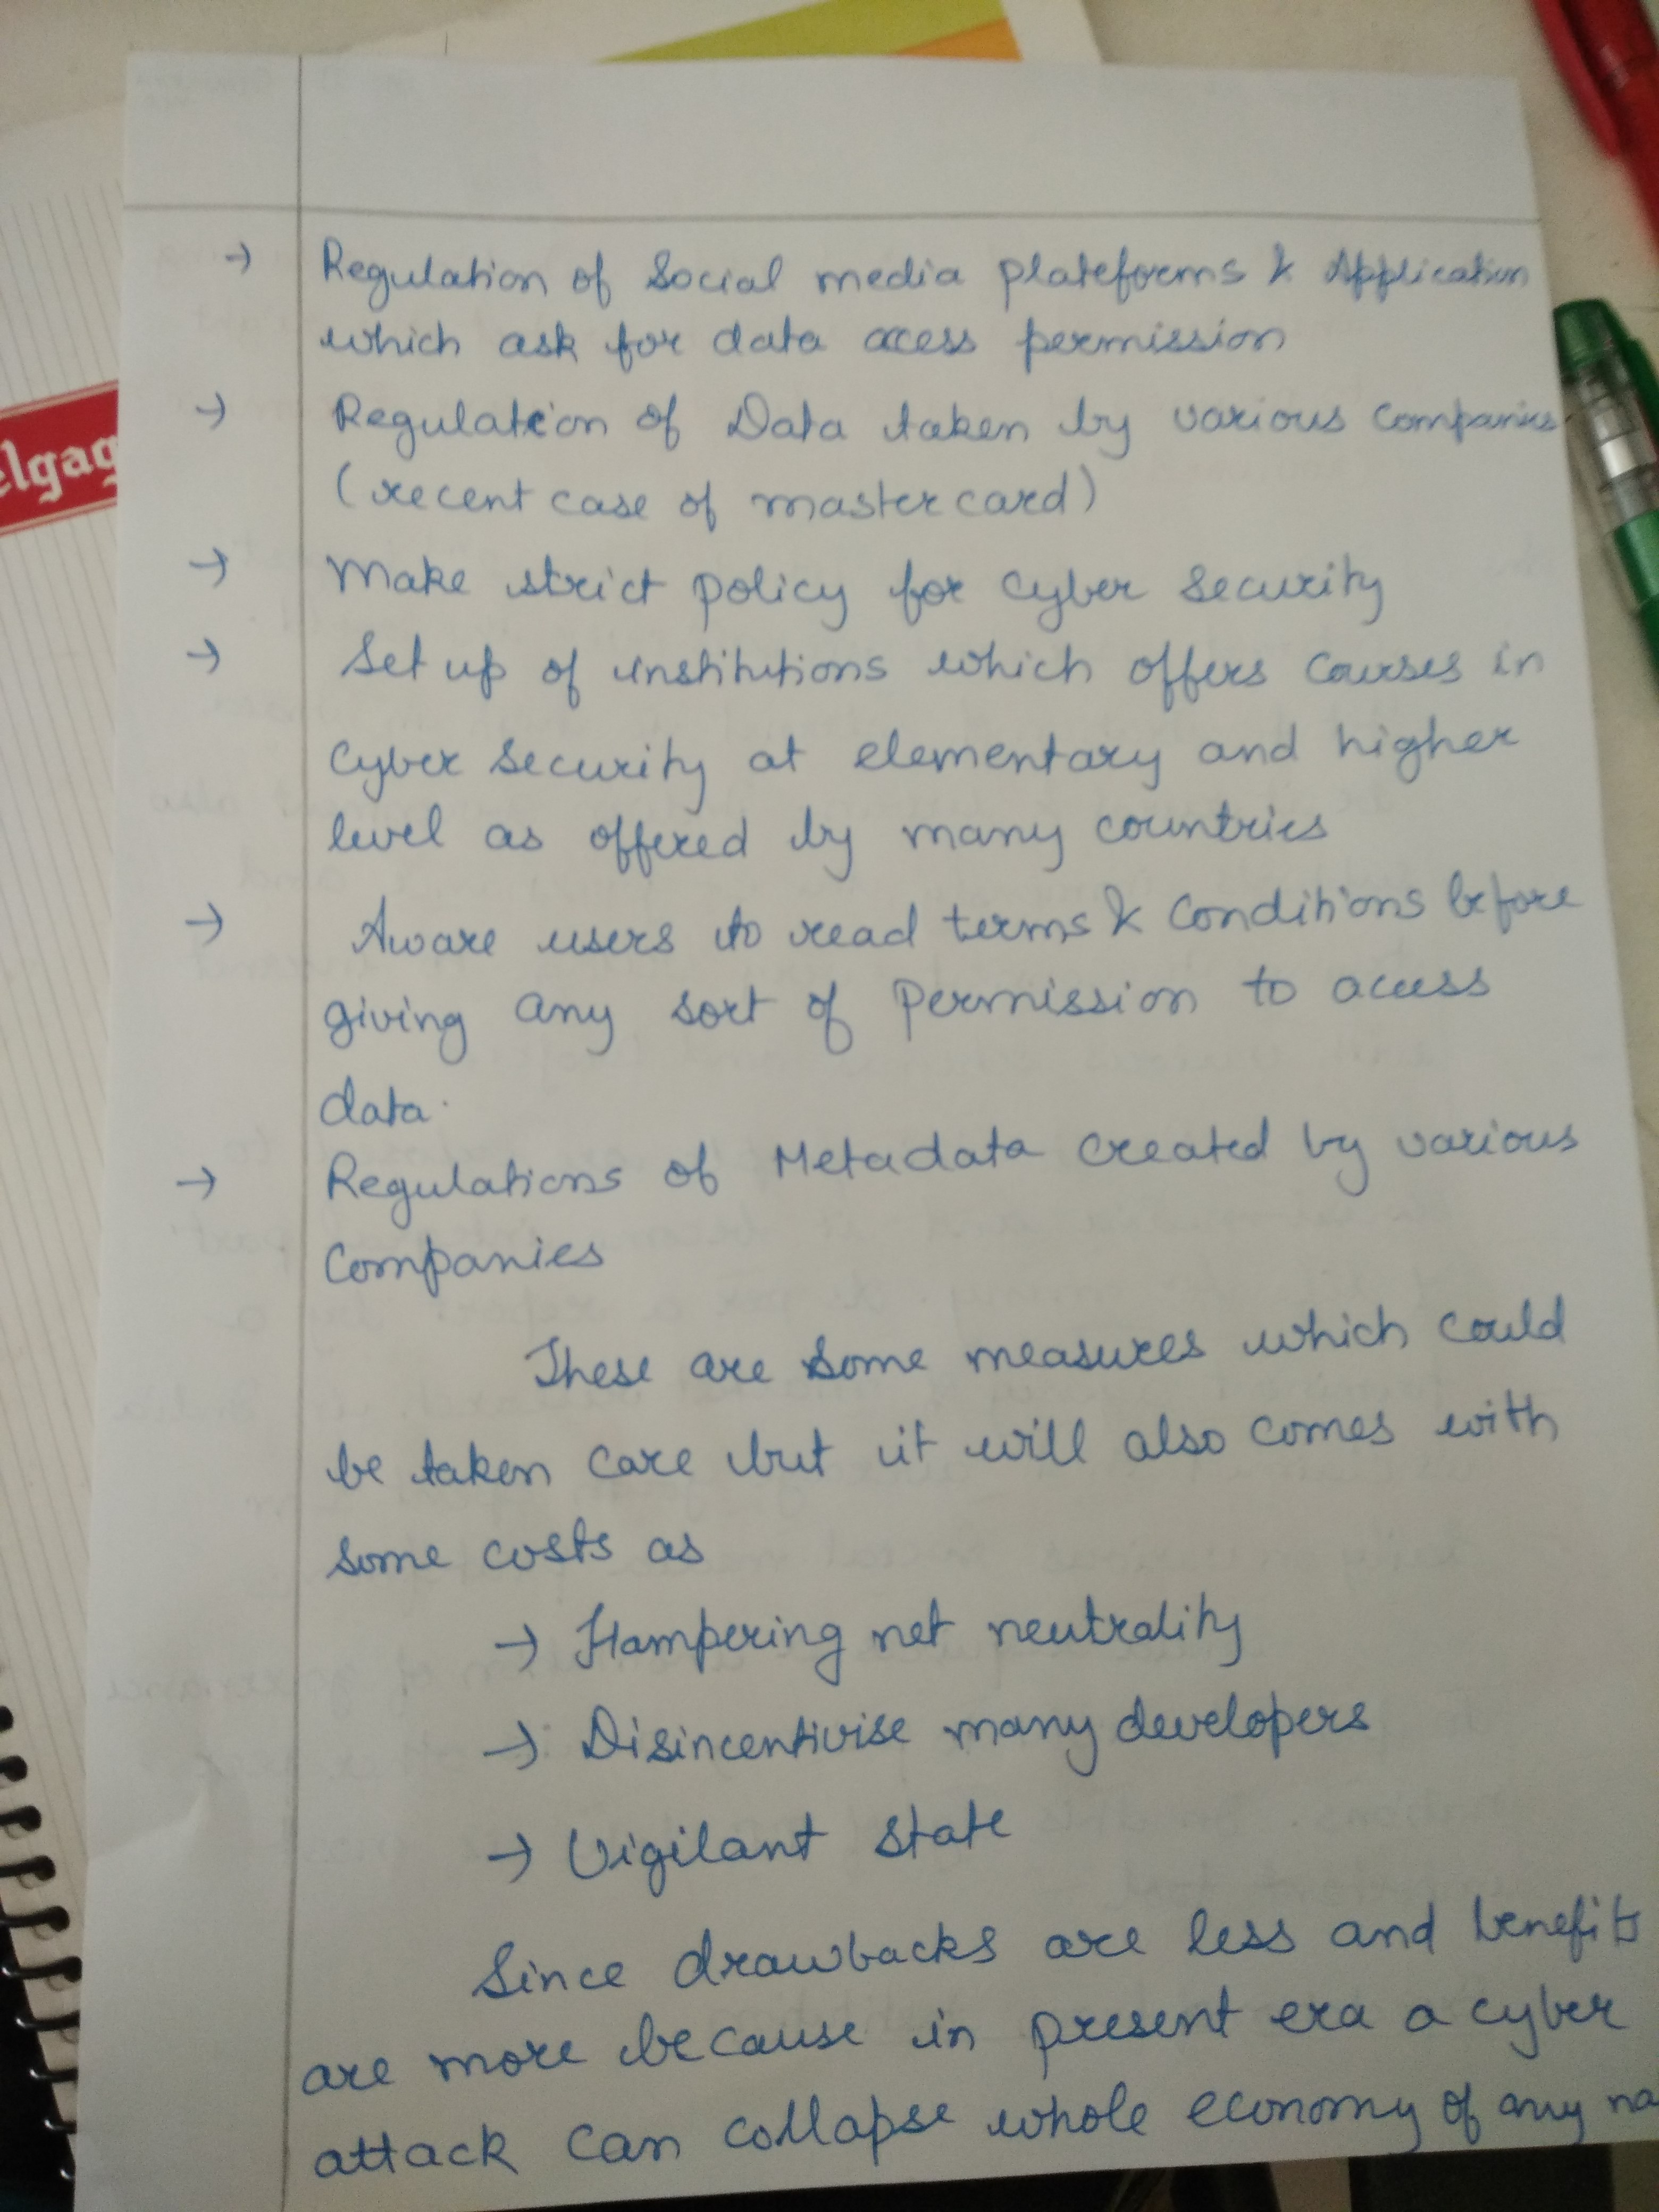 → Regulation of Social media plateforms & Application
which ask for data access permission
→ Regulation of Data taken by various Companies
(recent case of master card)
→ Make strict policy for Cyber Security
→ Set up of institutions which offers Courses in
Cyber Security at elementary and higher
level as offered by many countries
→ Aware users to read terms & Conditions before
giving any sort of Permission to access
data.
→ Regulations of Metadata created by various
Companies
These are some measures which could
be taken care but it will also comes with
some costs as
→ Hampering net neutrality
→ Disincentivise many developers
→ Vigilant State
Since drawbacks are less and benefits
are more because in present era a cyber
attack can collapse whole economy of any na
elgag